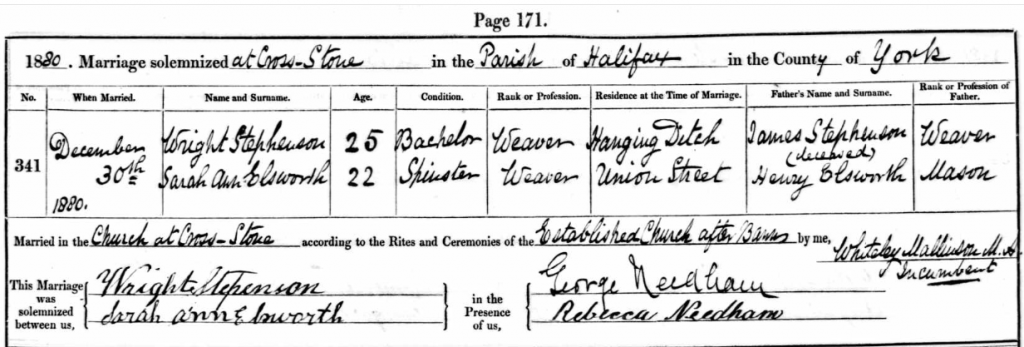 Page 171.
1880. Marriage solemnized at Cross-Stone in the Parish of Halifax in the County of York
No. When Married. Name and Surname. Age. Condition. Rank or Profession. Residence at the Time of Marriage. Father's Name and Surname. Rank or Profession of Father.
December Wright Stephenson 25 Bachelor Weaver Hanging Ditch James Stephenson Weaver
(deceased)
341 30th Sarah Ann Elsworth 22 Spinster Weaver Union Street Henry Elsworth Mason
1880.
Married in the Church at Cross-Stone according to the Rites and Ceremonies of the Established Church after Banns by me, Whiteley Mallinson M.A.
Incumbent
This Marriage was solemnized between us, Wright Stepenson in the Presence of us, George Needham
Sarah Ann Elsworth Rebecca Needham